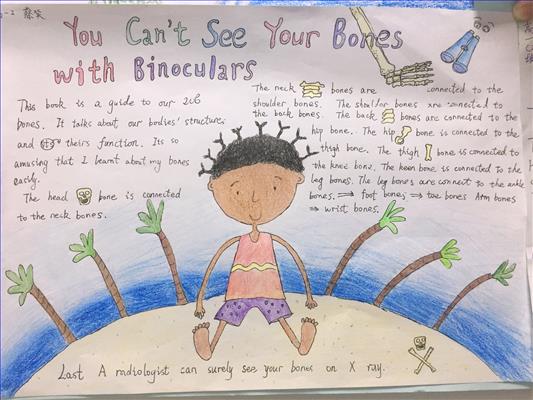 You Can't See Your Bones
with Binoculars
This book is a guide to our 206
bones. It talks about our bodies' structure
and theirs function. Its so
amusing that I learnt about my bones
easily.
The head bone is connected
to the neck bones.
The neck bones are connected to the
shoulder bones. The shoulder bones are connected to
the back bones. The back bones are connected to the
hip bone. The hip bone is connected to the
thigh bone. The thigh bone is connected to
the knee bone. The keen bone is connected to the
leg bones. The leg bones are connect to the ankle
bones. ⇒ foot bones ⇒ toe bones Arm bones
⇒ wrist bones.
Last A radiologist can surely see your bones on X ray.